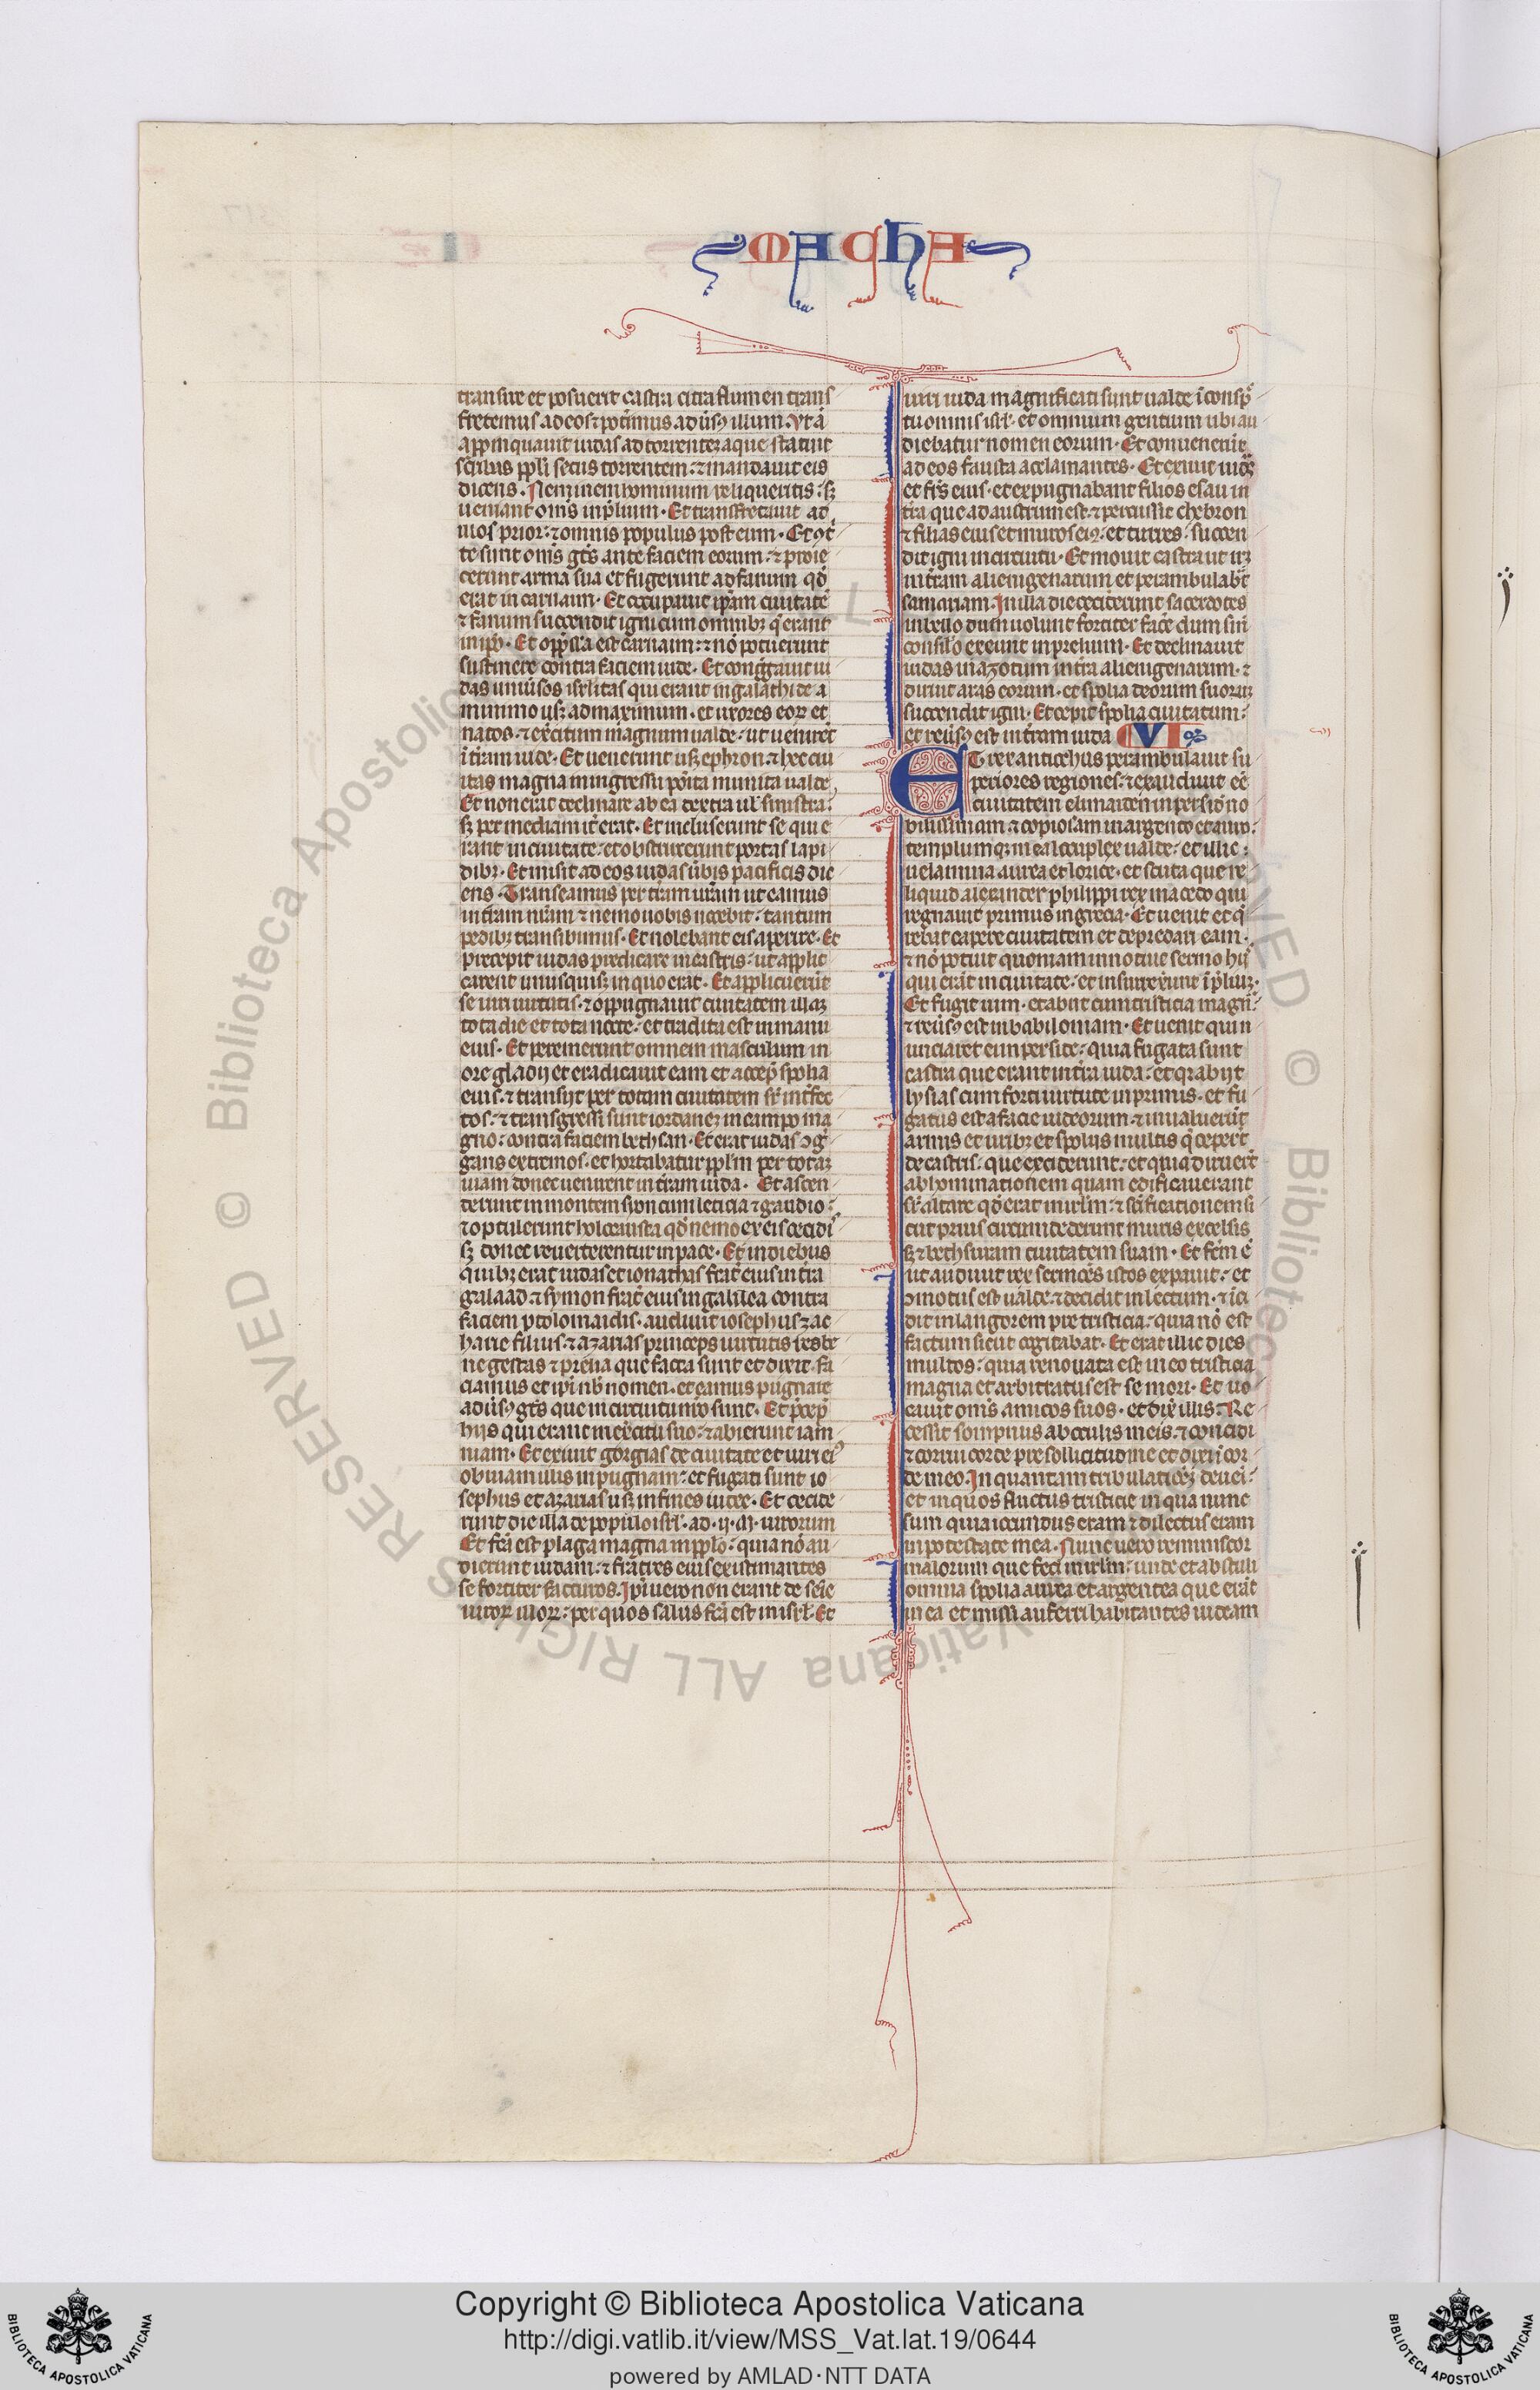 MACHA
transire et posuerit castra citra flumen trans
fretemus ad eos ⁊ pot̾imus adũsꝰ illum. Vt ã
appinquauit iudas ad torrentem aque statuit
scribas ppl̾i secus torrentem: ⁊ mandauit eis
dicens. Neminem hominum reliqueritis: sꝫ
ueniant om̃s in p̾lium. Et transfretauit ad
illos prior: ⁊ omnis populus post eum. Et ꝯt̾
te sunt om̃s gẽs ante faciem eorum: ⁊ proie
cerunt arma sua et fugerunt ad fanum qd̾
erat in carnaim. Et occupauit ip̃am ciuitatẽ
⁊ fanum succendit igni cum omnibꝫ q̾ erant
in ip̃o. Et opp̃ssa est carnaim: ⁊ nõ potuerunt
sustinere contra faciem iude. Et cong̾gauit iu
das uniũsos isrl̾itas qui erant in galathide a
minimo usꝫ ad maximum. et uxores eoꝝ et
natos. ⁊ ex̾citum magnum ualde. ut uenirẽt
ĩ t̾ram iude. Et uenerunt usꝫ ephron: ⁊ hec ciu
itas magna in ingressu posita munita ualde
Et non erat declinare ab ea dextera ul̾ sinistra:
sꝫ per mediam it̾ erat. Et incluserunt se qui e
rant in ciuitate: et obstruxerunt portas lapi
dibꝫ. Et misit ad eos iudas ũbis pacificis dic
ens. Transeamus per t̾ram ur̃am ut eamus
in t̾ram nr̃am ⁊ nemo uobis nocebit: tantum
pedibꝫ transibimus. Et nolebant eis aperire. Et
precepit iudas predicare in castris: ut applic
carent unusquisꝫ in quo erat. Et applicuerũt
se uiri uirtutis. ⁊ oppugnauit ciuitatem illaꝫ
tota die et tota nocte: et tradita est in manu
eius. Et peremerunt omnem masculum in
ore gladij et eradicauit eam et accep̾ spolia
eius. ⁊ transijt per totam ciuitatem sr̾ int̾fec
tos: ⁊ transgressi sunt iordaneꝫ in campo ma
gno: contra faciem bethsan. Et erat iudas ꝯg̾
gans extremos. et hortabatur ppl̾m per totaꝫ
uiam donec uenirent in t̾ram iuda. Et ascen
derunt in montem syon cum leticia ⁊ gaudio:
⁊ optulerunt holocausta qd̾ nemo ex eis cecidi
sꝫ donec reuerterentur in pace. Et in diebus
quibꝫ erat iudas et ionathas frat̾ eius in t̾ra
galaad. ⁊ symon frat̾ eius in galilea contra
faciem ptolomaidis. audiuit iosephus zac
harie filius. ⁊ azarias princeps uirtutis res be
ne gestas ⁊ prelia que facta sunt et dixit. Fa
ciamus et ip̃i nb̾ nomen. et eamus pugnare
adũsꝰ gẽs que in circuitu nr̃o sunt. Et p̾cep̾
hijs qui erant in ex̾citu suo: ⁊ abierunt iam
niam. Et exiuit gorgias de ciuitate et uiri eiꝰ
obuiam illis in pugnam: et fugati sunt io
sephus et azarias usꝫ in fines iudee. Et cecide
runt die illa de populo isrl̾. ad. ij. M. uirorum
Et fc̃a est plaga magna in ppl̾o: quia nõ au
dierunt iudam. ⁊ fratres eius existimantes
se fortiter facturos. Ip̃i uero non erant de sem̃e
uiroꝝ illoꝝ: per quos salus fc̃a est in isrl̾. Et
uiri iuda magnificati sunt ualde ĩ consp̾
tu omnis isrl̾. et omnium gentium ubi au
diebatur nomen eorum. Et conuenerũt
ad eos fausta acclamantes. Et exiuit iudas
et fr̃s eius. et expugnabant filios esau in
t̾ra que ad austrum est. ⁊ percussit chebron
⁊ filias eius et muros eiꝰ. et turres. succen
dit igni in circuitu. Et mouit castra ut iret
in t̾ram alienigenarum et perambulab̾t
samariam. In illa die ceciderunt sacerdotes
in bello dum uolunt fortiter face̾ dum sine
consilio exeunt in prelium. Et declinauit
iudas in azotum in t̾ra alienigenarum. ⁊
diruit aras eorum. et spolia deorum suoruꝫ
succendit igni. Et cepit spolia ciuitatum:
et reũsꝰ est in t̾ram iuda. VI
ET rex antiochus perambulauit su
periores regiones: ⁊ exaudiuit eẽ
ciuitatem elimaiden in perside no
bilissimam ⁊ copiosam in argento et auro.
templumqꝫ in ea locuplex ualde: et illic
uelamina aurea et lorice. et scuta que re
liquid alexander philippi rex macedo qui
regnauit primus in grecia. Et uenit et q̾
rebat capere ciuitatem et depredari eam.
⁊ nõ potuit quoniam innotuit sermo hijs
qui erãt in ciuitate: et insurrexerunt ĩ p̾liuꝫ.
Et fugit inm. et abiit cum tristicia magn̾
⁊ reũsꝰ est in babiloniam. Et uenit qui n
unciaret ei in perside: quia fugata sunt
castra que erant in t̾ra iuda: et qr̾ abijt
lysias cum forti uirtute in primis. et fu
gatus est a facie iudeorum. ⁊ inualuerũt
armis et uiribꝫ et spolijs multis q̾ ceper̃t
de castris: que exciderunt: et quia diruer̃t
abhominationem quam edificauerant
sr̾ altare qd̾ erat in irlm̃: ⁊ sc̃ificationem si
cut prius circumdederunt muris excelsis
sꝫ ⁊ bethsuram ciuitatem suam. Et fc̃m ẽ
ut audiuit rex sermões istos expauit: et
ꝯmotus est ualde: ⁊ decidit in lectum. ⁊ ĩci
dit in langorem pre tristicia: quia nõ est
factum sicut cogitabat. Et erat illic dies
multos: quia renouata est in eo tristicia
magna et arbitratus est se mori. Et uo
cauit om̃s amicos suos. et dix̾ illis: Re
cessit sompnus ab oculis meis. ⁊ concidi
⁊ corrui corde pre sollicitudine et dixi ĩ cor
de meo. In quantam tribulacõeꝫ deueni
et in quos fluctus tristicie in qua nunc
sum quia iocundus eram ⁊ dilectus eram
in potestate mea. Nunc uero reminiscor
malorum que feci in irlm̃: unde et abstuli
omnia spolia aurea et argentea que erãt
in ea et missi auferri habitantes iudeam
Copyright © Biblioteca Apostolica Vaticana
http://digi.vatlib.it/view/MSS_Vat.lat.19/0644
powered by AMLAD·NTT DATA
BIBLIOTECA APOSTOLICA VATICANA
BIBLIOTECA APOSTOLICA VATICANA
© Biblioteca Apostolica Vaticana ALL RIGHTS RESERVED